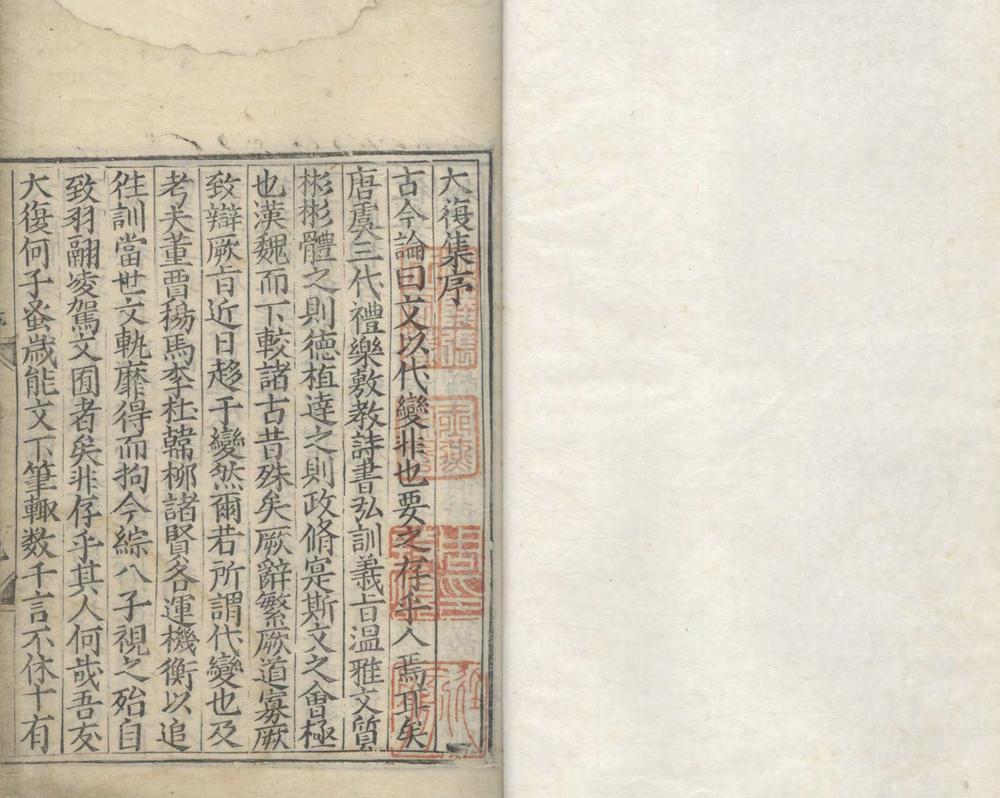 大復集序
古今論曰文以代變非也要之存乎人焉耳矣
唐虞三代禮樂敷教詩書弘訓義旨溫雅文質
彬彬體之則德植達之則政脩寔斯文之會極
也漢魏而下較諸古昔殊矣厥辭繁厥道寡厥
致辯厥旨近日趍于變然爾若所謂代變也及
考夫董賈楊馬李杜韓柳諸賢各運機衡以追
徃訓當世文軌靡得而拘今綜八子視之殆自
致羽翮凌駕文囿者矣非存乎其人何哉吾友
大復何子蚤歲能文下筆輙数千言不休十有